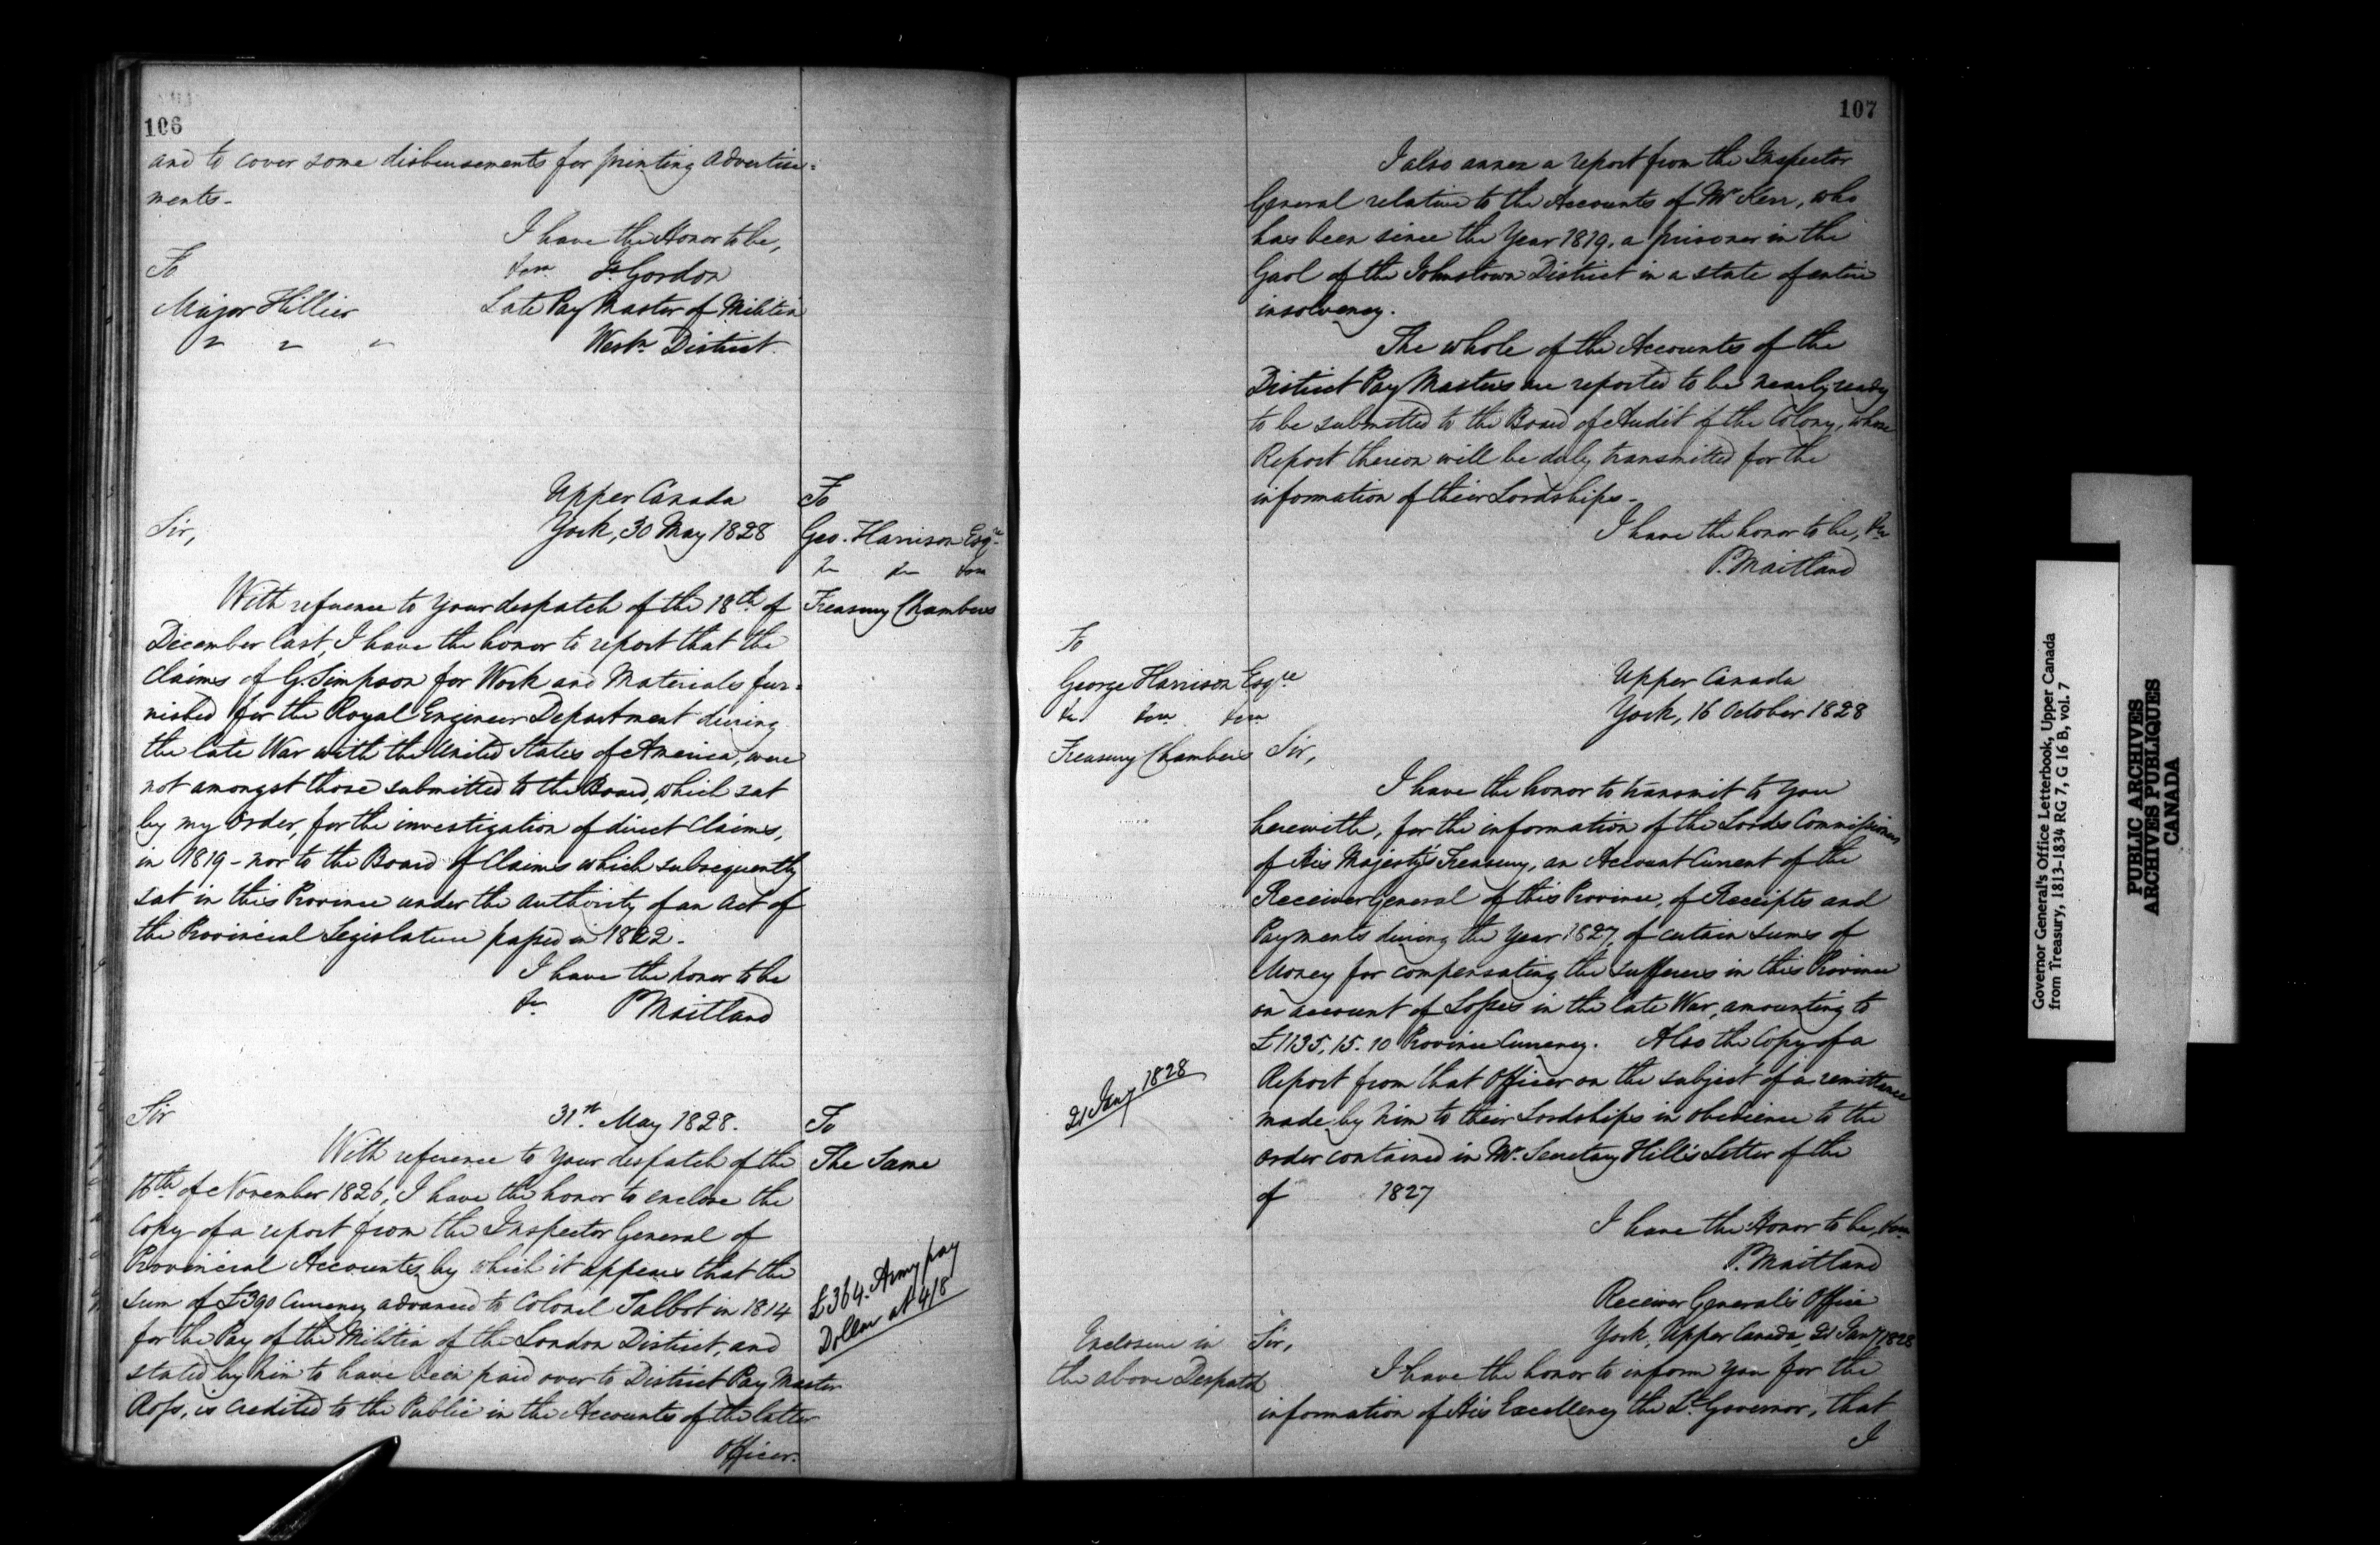 106
and to cover some disbursements for printing advertise=
ments-
I have the Honor to be,
&c Js Gordon
To
Major Hillier
Late Pay Master of Militia
" " "
Westn District.
Upper Canada
York, 30 May 1828
Sir,
To
Geo. Harrison Esqre
&c &c &c
Treasury Chambers
With refuence to Your despatch of the 18th of
December last, I have the honor to report that the
Claims of G. Simpson for Work and Materials fur=
nished for the Royal Engineer Department during
the late War with the United States of America, were
not amongst those submitted to the Board, which sat
by my Order, for the investigation of direct Claims,
in 1819 - nor to the Board of Claims which subsequently
sat in this Province under the authority of an Act of
the Provincial Legislature passed in 1822.
I have the honor to be
&c P Maitland
Sir
31st May 1828.
To
The Same
With reference to Your despatch of the
16th of November 1826, I have the honor to enclose the
Copy of a report from the Inspector General of
Provincial Accounts, by which it appears that the
sum of £390 Currency advanced to Colonel Talbot in 1814
for the Pay of the Militia of the London District, and
stated by him to have been paid over to District Pay Master
Ross, is Credited to the Public in the Accounts of the latter
Officer.
£364. Army pay
Dollar at 4/8
107
I also annex a report from the Inspector
General relative to the Accounts of Mr Kerr, who
has been since the Year 1819, a prisoner in the
Gaol of the Johnstown District in a state of entire
insolvency.
The whole of the Accounts of the
District Pay Masters are reported to be nearly ready
to be submitted to the Board of Audit of the Colony, whose
Report thereon will be duly transmitted for the
information of their Lordships-
I have the honor to be, &c
P. Maitland
To
George Harrison Esqre
&c &c &c
Treasury Chambers
Upper Canada
York, 16 October 1828
Sir,
I have the honor to transmit to You
herewith, for the information of the Lords Commissioners
of His Majesty's Treasury, an Account Current of the
Receiver General of this Province, of Receipts and
Payments during the Year 1827, of certain sums of
Money for compensating the sufferers in this Province
on account of Losses in the late War, amounting to
£1135. 15. 10 Province Currency. Also the Copy of a
Report from that Officer on the subject of a remittance
made by him to their Lordships in obedience to the
order contained in Mr. Secretary Hill's Letter of the
of 1827
21 Jany 1828
I have the Honor to be, &c
P. Maitland
Receiver General's Office
York, Upper Canada, 21 Jany 1828
Enclosure in
the above Despatch
Sir,
I have the honor to inform You for the
information of His Excellency the Lt Governor, that
I
Governor General's Office Letterbook, Upper Canada
from Treasury, 1813-1834 RG 7, G 16 B, vol. 7
PUBLIC ARCHIVES
ARCHIVES PUBLIQUES
CANADA